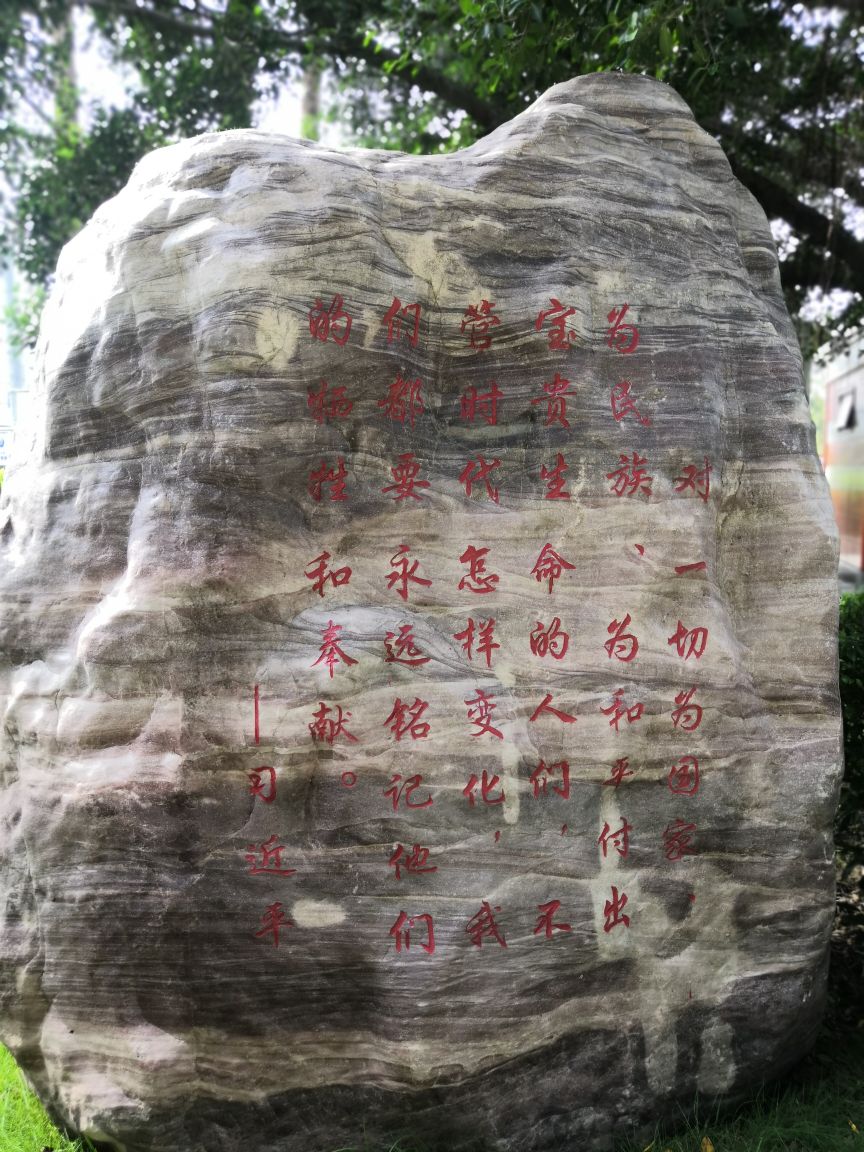 对一切为国家、
为民族、为和平付出
宝贵生命的人们，不
管时代怎样变化，我
们都要永远铭记他们
的牺牲和奉献。
——习近平